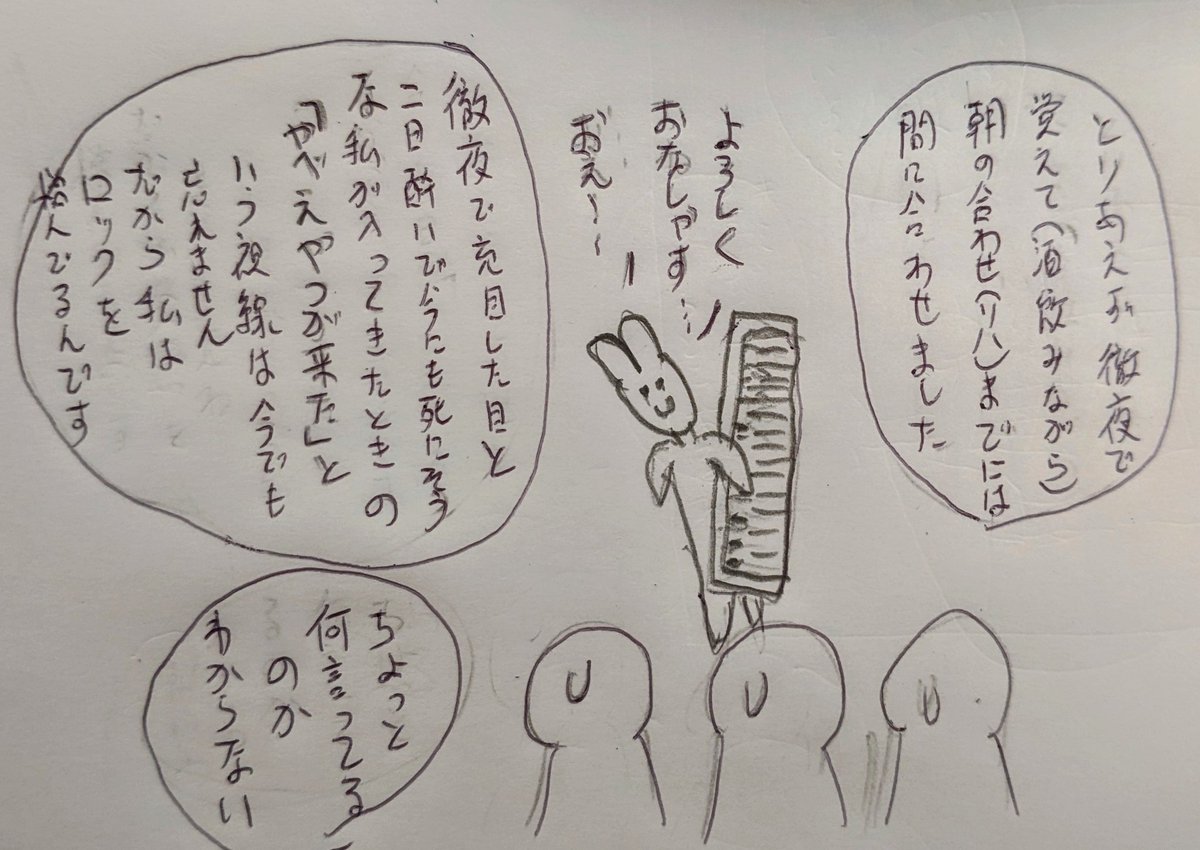 とりあえず徹夜で
覚えて(酒飲みながら)
朝の合わせ(リハ)までには
間に合わせました
よろしく
おなしゃす…
おえ〜
徹夜で充血した目と
二日酔いで今にも死にそう
な私が入ってきたときの
「かべえやつが来た」と
いう視線は今でも
忘れません
だから私は
ロックを
拒んでるんです
ちょっと
何言ってる
のか
わからない